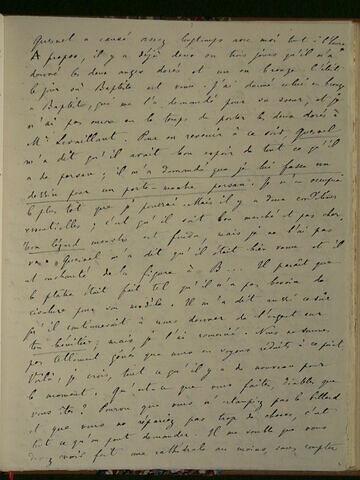 Quesnel a causé assez longtemps avec moi tout à l'heure
A propos, il y a déjà deux ou trois jours qu'il m'a
donné les deux anges dorés et un en bronze c'était
le jour où Baptiste est venu. J'ai donné celui en bronze
à Baptiste, qui me l'a demandé pour sa sœur, et je
n'ai pas encore eu le temps de porter les deux dorés à
Mr. Levaillant. Pour en revenir à ce soir, Quesnel
m'a dit qu'il avait bon espoir de tout ce qu'il
a de persan; il m'a demandé que je lui fasse un
dessin pour un porte-montre persan. Je m'en occuperai
le plus tôt que je pourrai. Mais il y a deux conditions
essentielles; c'est qu'il soit bon marché et pas cher.
Ton monstre est fondu, mais je ne l'ai pas
vu. Quesnel m'a dit qu'il était bien venu et il
est enchanté de la figure à B... Il paraît que
le plâtre était fait tel qu'il n'a pas besoin de
ciselure pour son modèle. Il m'a dit aussi ce soir
qu'il continuerait à nous donner de l'argent sur
ton mais je l'ai remercié. Nous ne sommes
pas tellement gênés que nous en soyons réduits à ce point
Voilà, je crois, tout ce qu'il y a de nouveau pour
le moment. Qu'est-ce que vous faites, diables que
vous êtes? Pourvu que vous n' pas le billard
et que vous ne répariez pas trop de choses, c'est
tout ce qu'on peut demander. Il me semble que vous
devez avoir fait une cathédrale au moins, sans compter